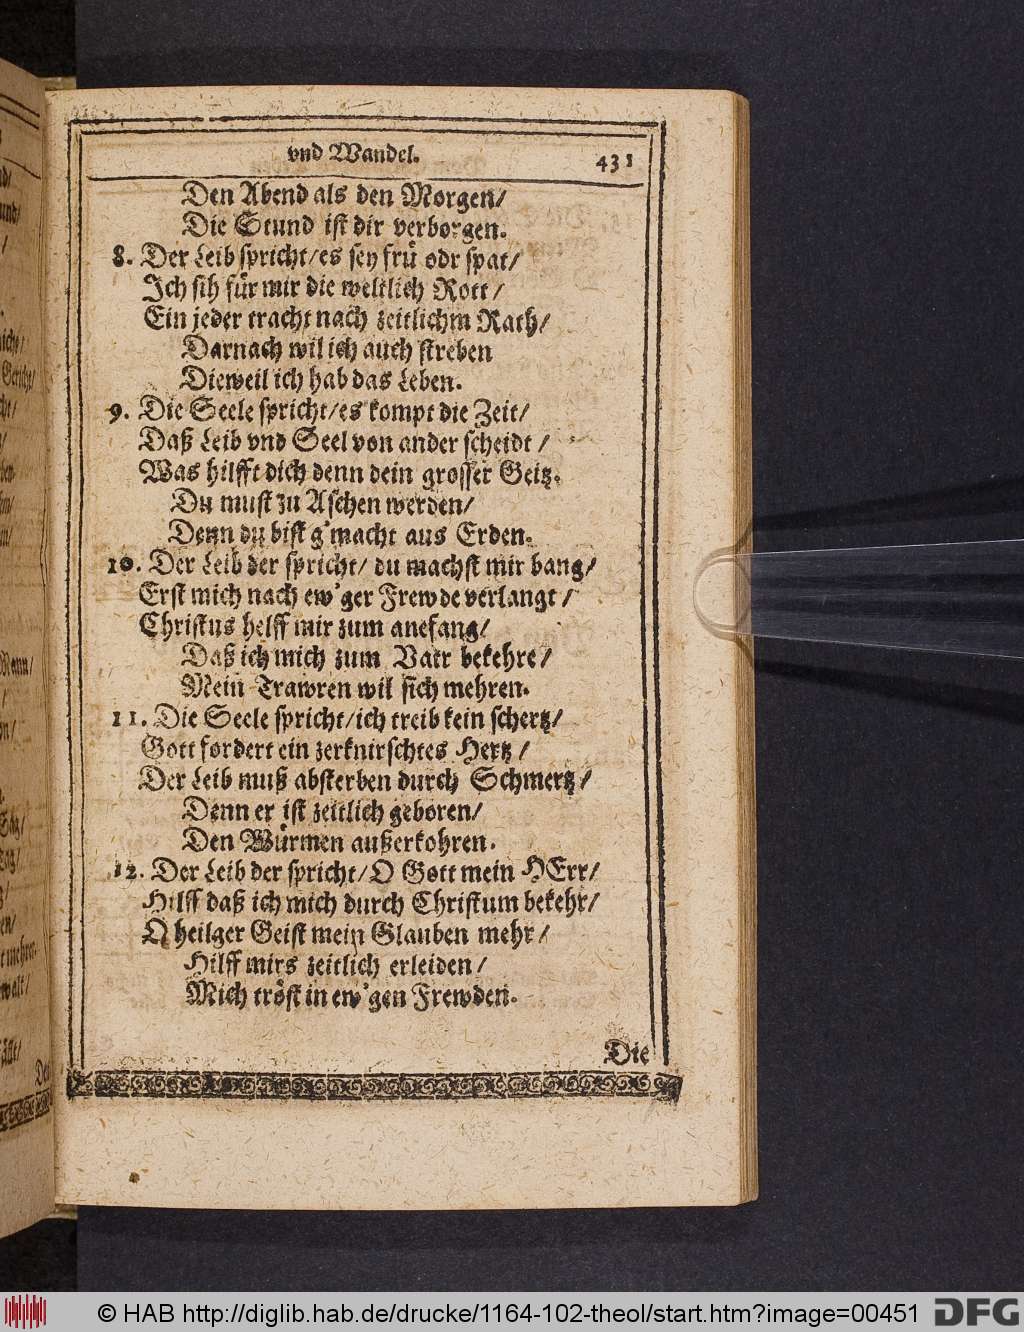 vnd Wandel. 431
Den Abend als den Morgen/
Die Stund ist dir verborgen.
8. Der Leib spricht/es sey frü odr spat/
Ich sih für mir die weltlich Rott/
Ein jeder tracht nach zeitlichm Rath/
Darnach wil ich auch streben
Dieweil ich hab das Leben.
9. Die Seele spricht/es kompt die Zeit/
Daß Leib vnd Seel von ander scheidt/
Was hilfft dich denn dein grosser Geitz.
Du must zu Aschen werden/
Denn du bist g'macht aus Erden.
10. Der Leib der spricht/ du machst mir bang/
Erst mich nach ew'ger Frewde verlangt/
Christus helff mir zum anefang/
Daß ich mich zum Vatr bekehre/
Mein Trawren wil sich mehren.
11. Die Seele spricht/ich treib kein schertz/
Gott fordert ein zerknirschtes Hertz/
Der Leib muß absterben durch Schmertz/
Denn er ist zeitlich geboren/
Den Würmen außerkohren.
12. Der Leib der spricht/O Gott mein HErr/
Hilff daß ich mich durch Christum bekehr/
O heilger Geist mein Glauben mehr/
Hilff mirs zeitlich erleiden/
Mich tröst in ew'gen Frewden.
Die
© HAB http://diglib.hab.de/drucke/1164-102-theol/start.htm?image=00451
DFG